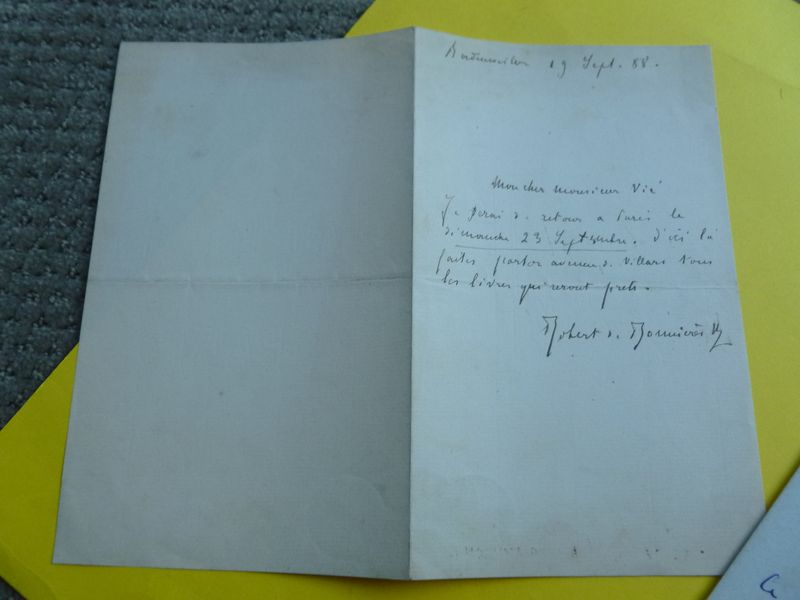 Badenweiler 19 Sept. 88.
Mon cher monsieur Vié
Je serai de retour à Paris le
dimanche 23 Septembre. d'ici là
faites porter avenue de Villars tous
les livres qui seront prêts.
Robert de Bonnières